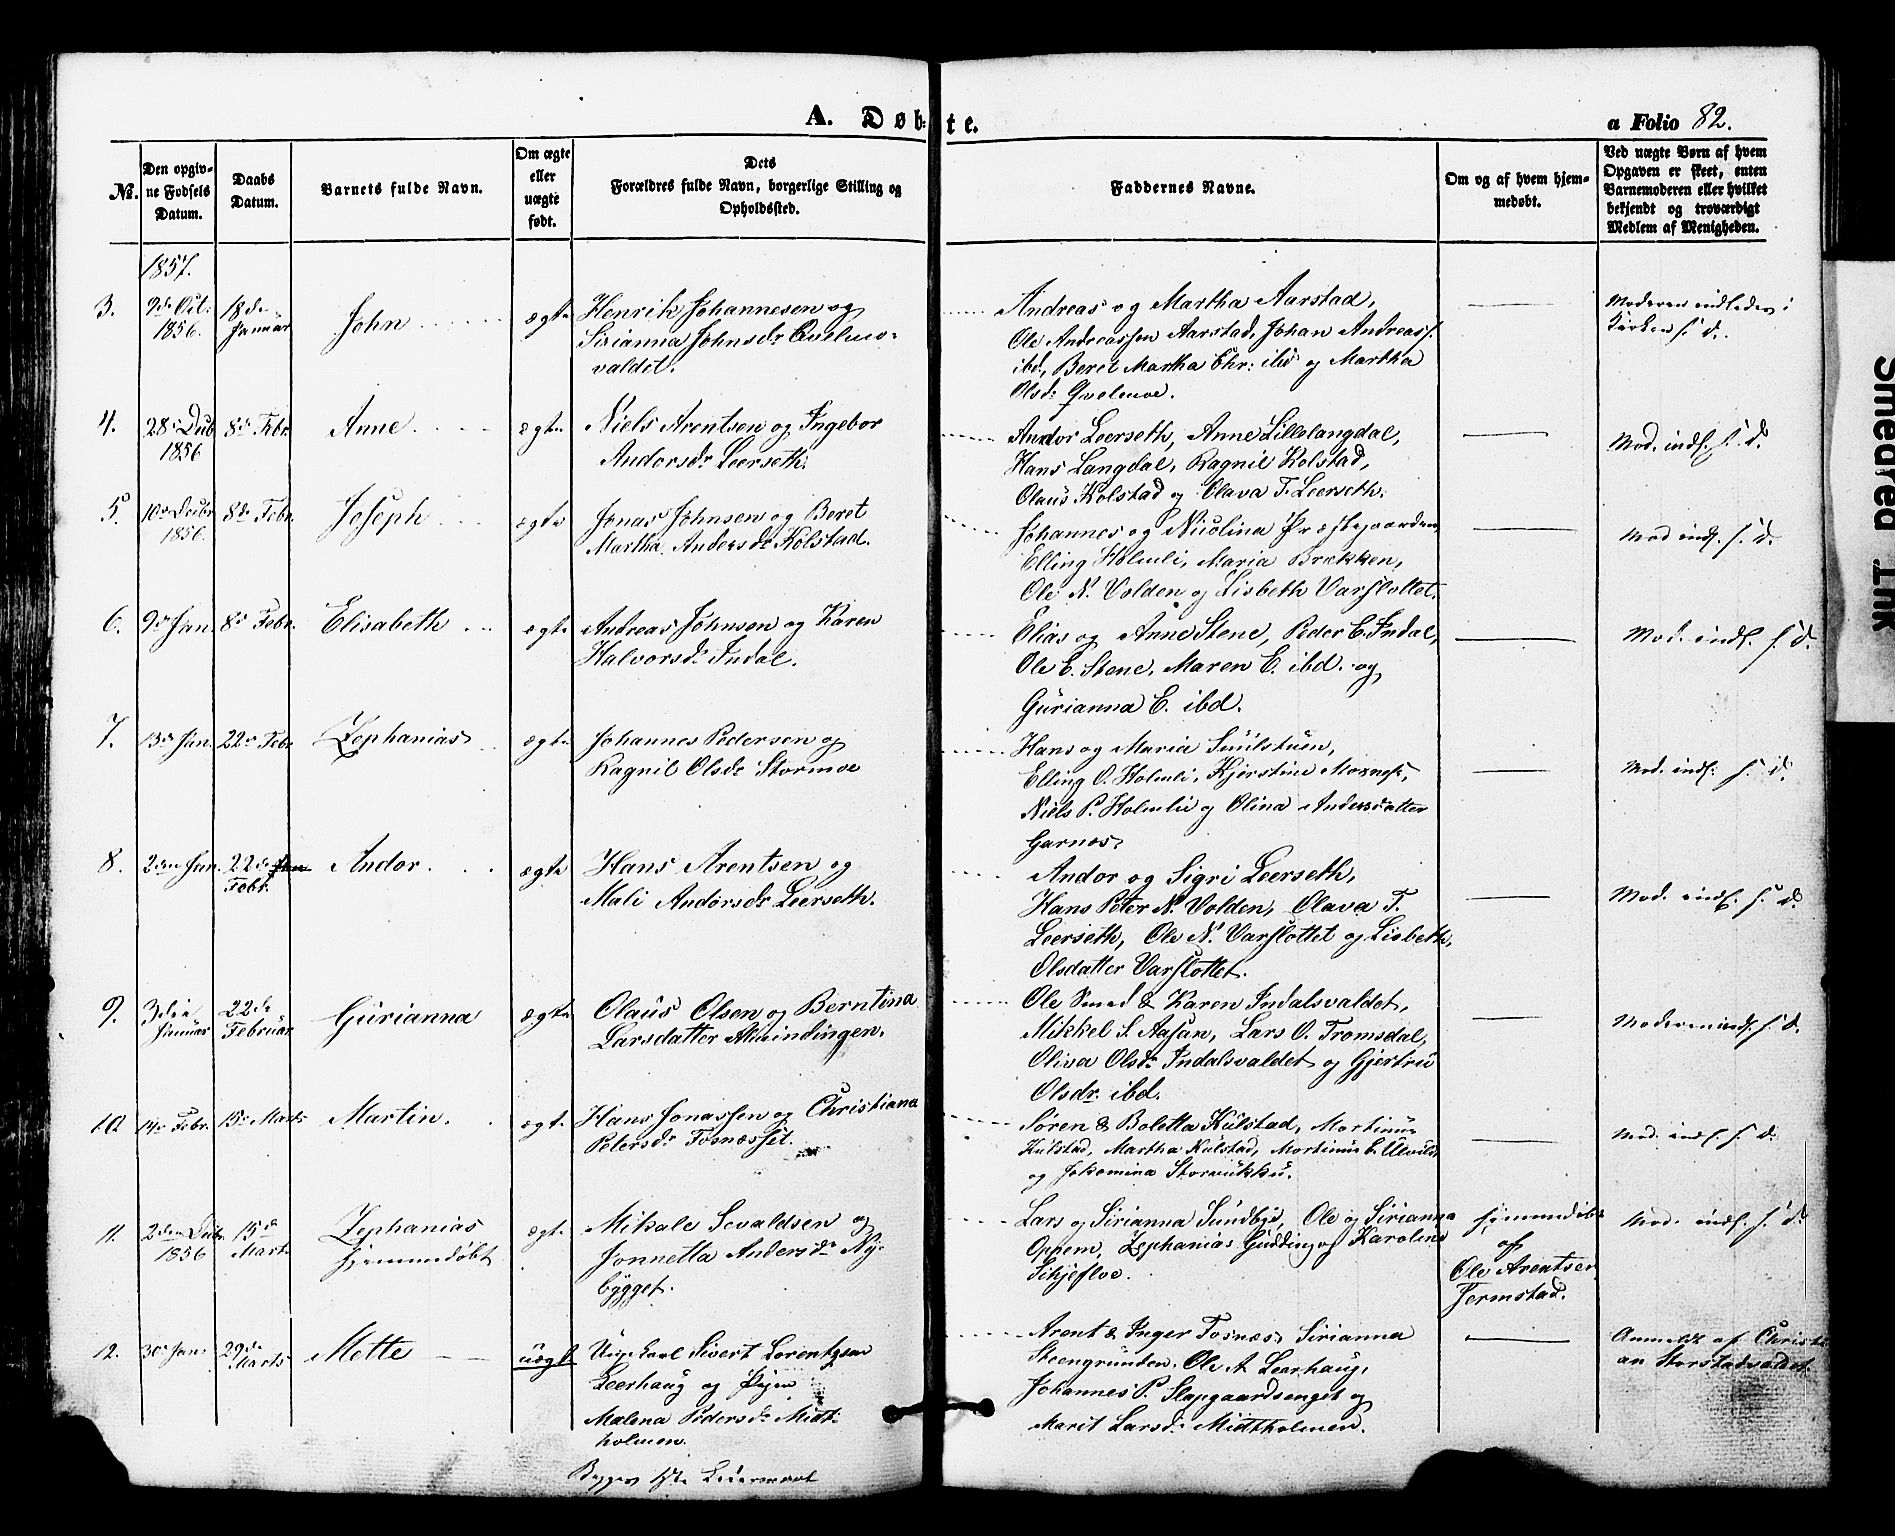 A. Døb=
te.
a Folio 82.
Nr.
Den opgiv-
ne Fødsels
Datum.
Daabs
Datum.
Barnets fulde Navn.
Om ægte
eller
uægte
født.
Dets
Forældres fulde Navn, borgerlige Stilling og
Opholdssted.
Faddernes Navne.
Om og af hvem hjem-
medøbt.
Ved uægte Børn af hvem
Opgaven er skeet, enten
Barnemoderen eller hvilket
bekjendt og troværdigt
Medlem af Menigheden.
1857.
3.
9de Oct.
1856.
18de
Januar
John
ægte
Henrik Johannesen og
Sirianna Johnsdr Qvelmo-
valdet.
Andreas og Martha Aarstad,
Ole Andreassen Aarstad, Johan Andreass.
ibd, Beret Martha Chr: ibd og Martha
Olsdr Qvelmoe.
Moderen indleden i
Kirken s. d.
4.
28 Dcb
1856
8de Febr.
Anne
ægte
Niels Arentsen og Ingebor
Andorsdr Leerseth.
Andor Leerseth, Anne Lillelangdal,
Hans Langdal, Ragnil Kolstad,
Olaus Kolstad og Olava T. Leerseth.
Mod. indl. s. d.
5.
10de Decbr
1856.
8de Febr.
Joseph
ægte
Jonas Johnsen og Beret
Martha Andersdr Kolstad.
Johannes og Nicolina Præstegaarden,
Elling Holmli, Maria Brækken,
Ole N. Volden og Lisbeth Varslottet.
Mod indl. s. d.
6.
9de Jan.
8de Febr.
Elisabeth
ægte
Andreas Johnsen og Karen
Halvorsdr Indal.
Elias og Anne Stene, Peder E. Indal,
Ole E. Stene, Maren E. ibd. og
Gurianna E. ibd.
Mod. indl. s. d.
7.
13de Jan.
22de Febr
Zephanias
ægte
Johannes Pedersen og
Ragnil Olsdr Stormoe
Hans og Maria Suulstuen,
Elling O. Holmli, Kjerstine Moxnes,
Niels P. Holmli og Olina Andersdatter
Garnes.
Mod. indl. s. d.
8.
2den Jan.
22de Jan
Febr.
Andor
ægte
Hans Arentsen og
Mali Andorsdr Leerseth.
Andor og Sigri Leerseth,
Hans Peter N. Volden, Olava T.
Leerseth, Ole N. Varslottet og Lisbeth
Olsdatter Varslottet.
Mod. indl. s. d.
9.
3die
Januar
22de
Februar
Gurianna
ægte
Olaus Olsen og Berntina
Larsdatter Almindingen.
Ole Smed & Karen Indalsvaldet,
Mikkel S. Aasan, Lars O. Tromsdal,
Oliva Olsdr Indalsvaldet og Gjertru
Olsdr. ibd.
Moderen indl. s. d.
10
14de Febr.
15de Marts
Martin.
ægt.
Hans Jonassen og Christiana
Petersdr Tosnæsset.
Søren & Boletta Kulstad, Mortinus
Kulstad, Martha Kulstad, Mortinus E. Ulvild,
og Jokomina Storvukku.
Mod. indl. s. d.
11.
2den Dcb
1856
15de
Marts
Zephanias
hjemmedøbt
ægt.
Mikale Sevaldsen og
Jonnetta Andersdr Ny-
bygget.
Lars og Sirianna Sundbye, Ole og Sirianna
Oppem, Zephanias Gudding og Karoline
hjemmedøbt
af
Ole Arentsen
Jermstad.
Mod. indl. s. d.
12.
30de Jan.
29de
Marts
Mette
uægt
Ungkarl Sivert Lorentzsen
Leerhaug og Pigen
Malena Pedersdr Midt-
holmen.
Begges 1ste Leiermaal
Arent & Inger Tosnæs, Sirianna
Steengrunden, Ole A. Leerhaug,
Johannes P. Slapgaardsenget og
Marit Larsdr Midtholmen.
Anmeldt af Christi
an Storstadvaldet
Smeared Ink